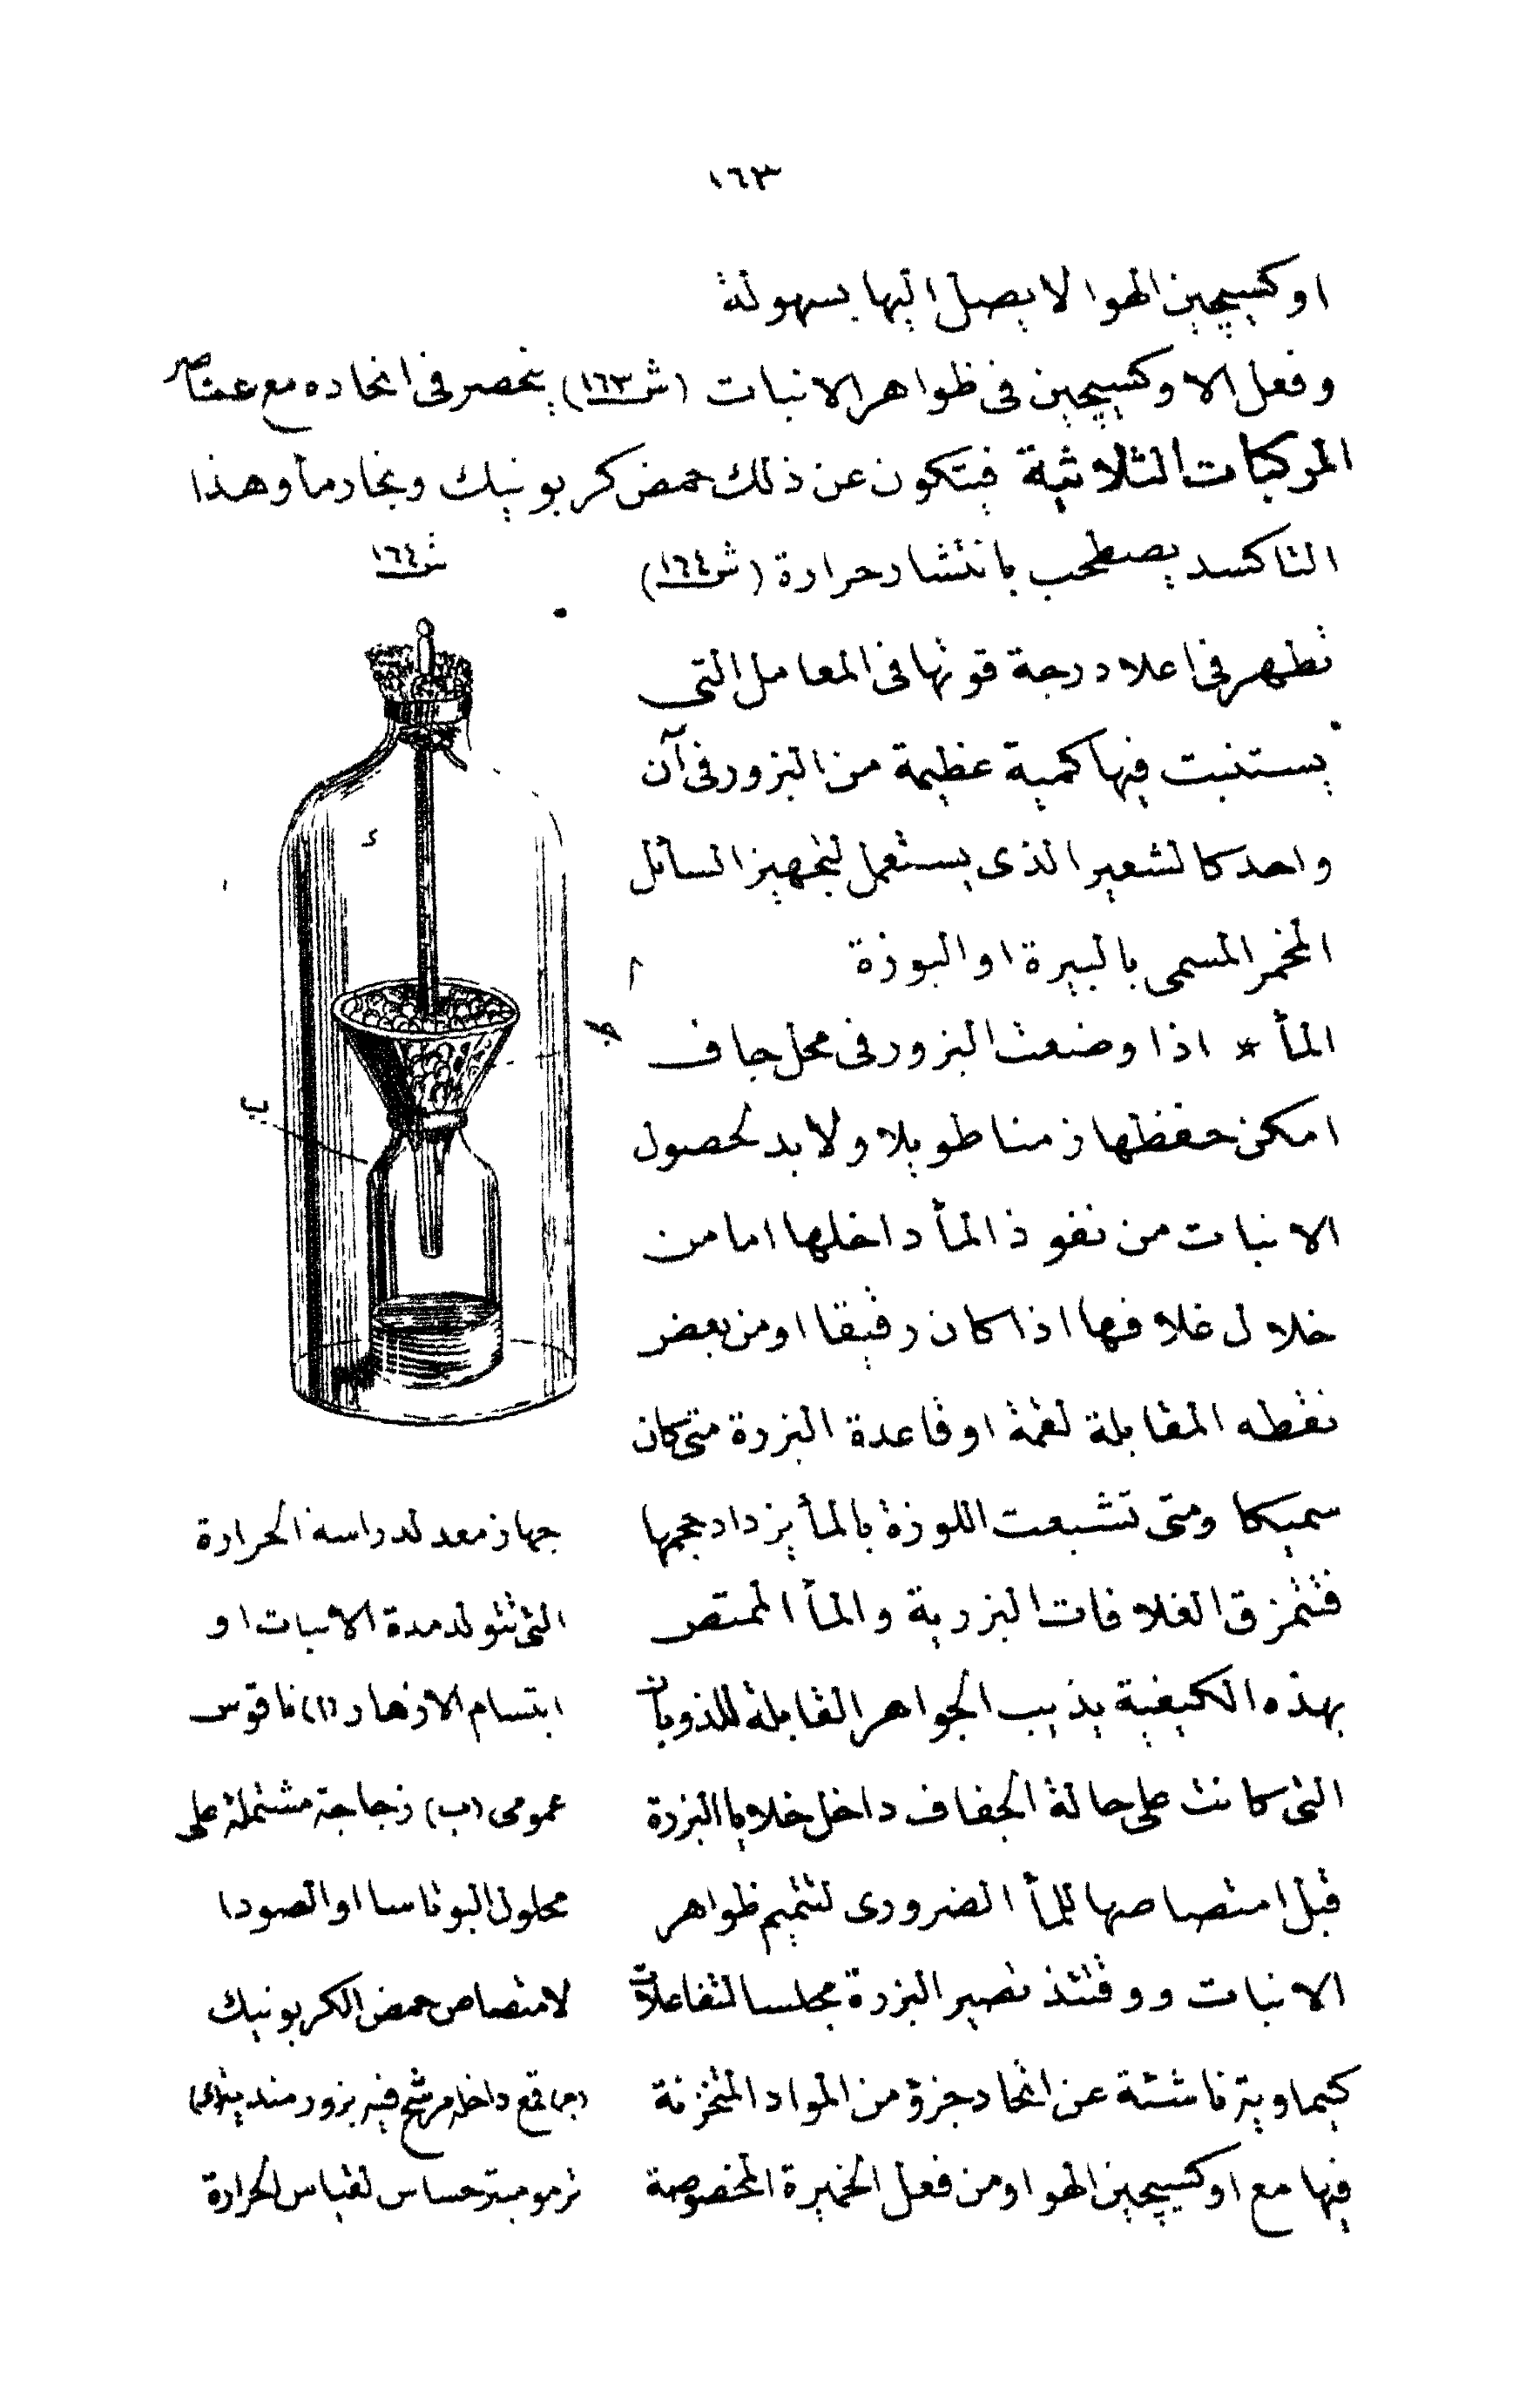 ١٦٣
اوكسيچين الهوا لا يصل اليها بسهولة
وفعل الاوكسيچين فى ظواهر الانبات (ش١٦٣) ينحصر فى اتحاده مع عناصر
المركبات الثلاثية فيتكون عن ذلك حمض كربونيك وبخار مأ وهذا
التاكسد يصطحب بانتشار حرارة (ش١٦٤)
تظهر فى اعلا درجة قوتها فى المعامل التى
يستنبت فيها كمية عظيمة من البزور فى آن
واحد كالشعير الذى يستعمل لتجهيز السائل
المخمر المسمى بالبيرة او البوزة
المأ * اذا وضعت البزور فى محل جاف
امكن حفظها زمنا طويلا ولا بد لحصول
الانبات من نفوذ المأ داخلها اما من
خلال غلافها اذا كان رقيقا او من بعض
نقطه المقابلة لقمة او قاعدة البزرة متى كان
سميكا ومتى تشبعت اللوزة بالمأ يزداد حجمها
فتتمزق الغلافات البزرية والمأ الممتص
بهذه الكيفية يذيب الجواهر القابلة للذوبان
التى كانت على حالة الجفاف داخل خلايا البزرة
قبل امتصاصها للمأ الضرورى لتتميم ظواهر
الانبات ووقتئذ تصير البزرة مجلسا لتفاعلات
كيماوية ناشئة عن اتحاد جزؤ من المواد المتخزنة
فيها مع اوكسيچين الهوا ومن فعل الخميرة المخصوصة
ش١٦٤
ء
أ
ج
ب
جهاز معد لدراسة الحرارة
التى تتولد مدة الانبات او
ابتسام الازهار (ا) ناقوس
عمومى (ب) زجاجة مشتملة على
محلول البوتاسا او الصودا
لامتصاص حمض الكربونيك
(ج) قمع داخله مرشح فيه بزور مندية (ء)
ترمومتر حساس لقياس الحرارة